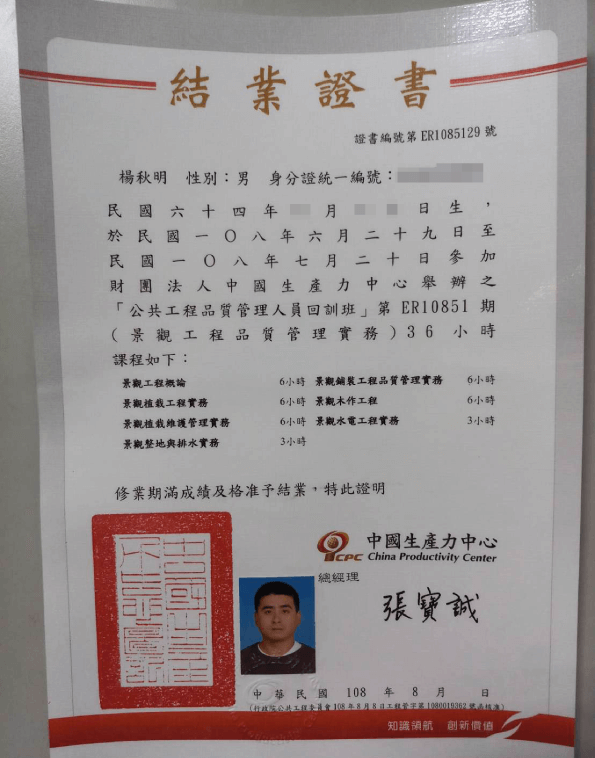 結業證書
證書編號第ER1085129號
楊秋明 性別:男 身分證統一編號:
民國六十四年 月 日生,
於民國一〇八年六月二十九日至
民國一〇八年七月二十日參加
財團法人中國生產力中心舉辦之
「公共工程品質管理人員回訓班」第ER10851期
(景觀工程品質管理實務)36小時
課程如下:
景觀工程概論 6小時 景觀鋪裝工程品質管理實務 6小時
景觀植栽工程實務 6小時 景觀木作工程 6小時
景觀植栽維護管理實務 6小時 景觀水電工程實務 3小時
景觀整地與排水實務 3小時
修業期滿成績及格准予結業,特此證明
CPC 中國生產力中心
China Productivity Center
總經理
張寶誠
中華民國 108 年 8 月 日
(行政院公共工程委員會108年8月8日工程管字第1080019362號函核准)
知識領航 創新價值